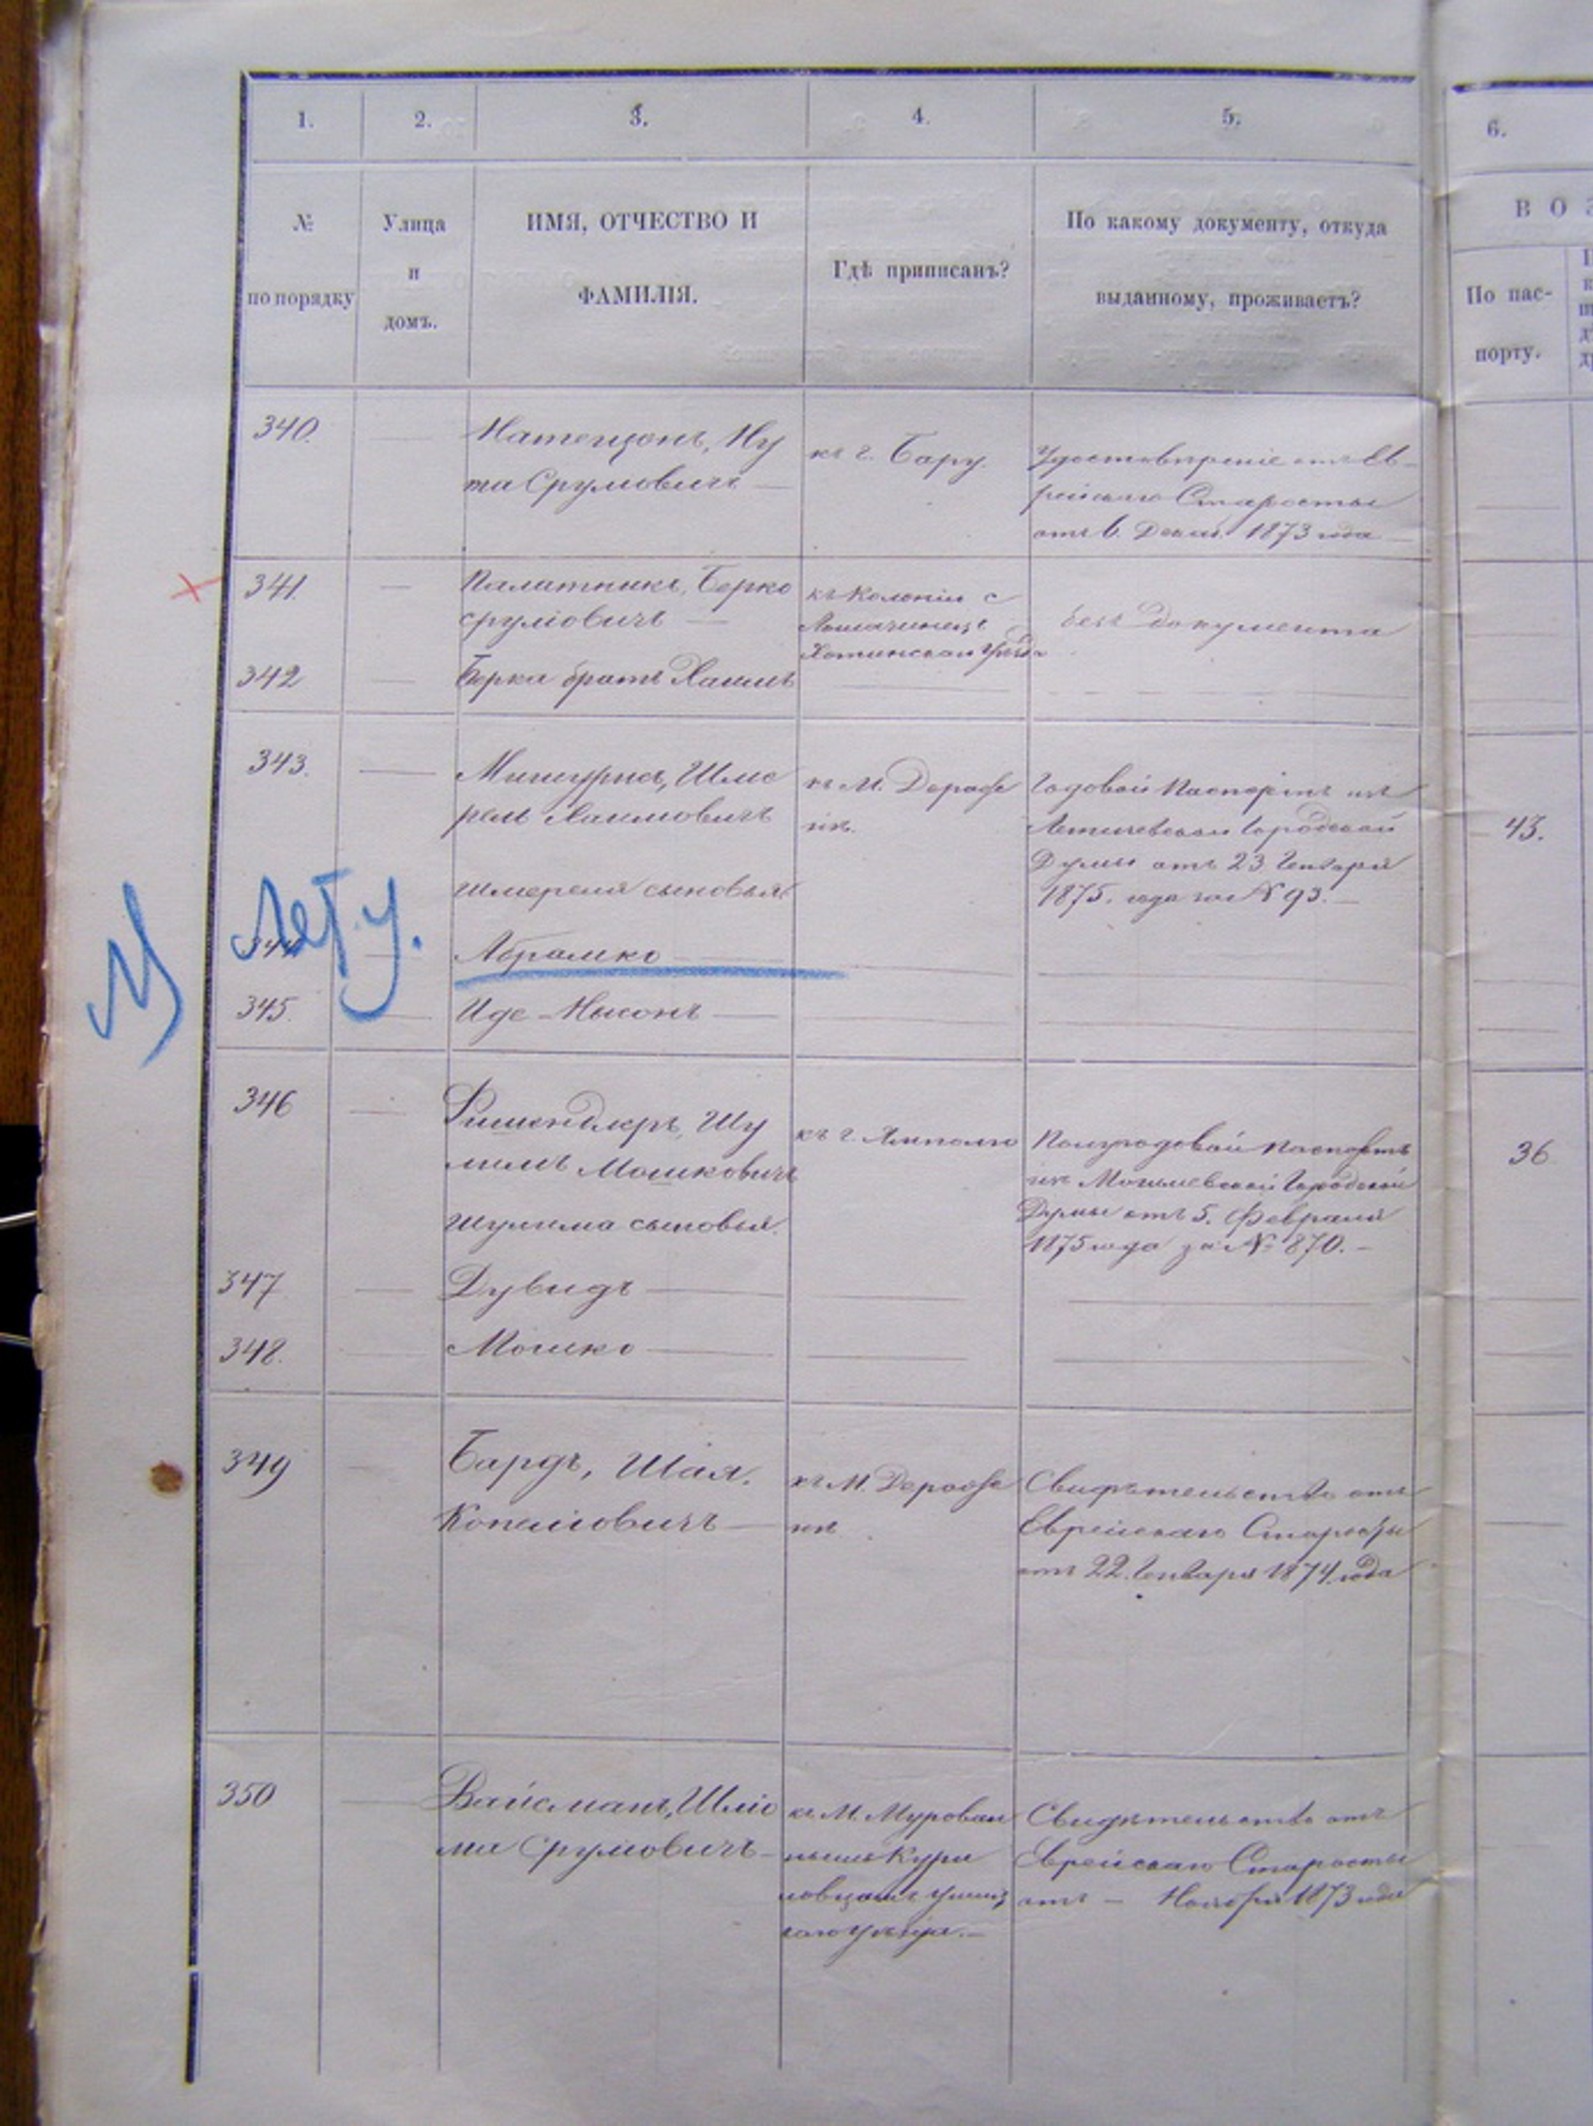 1. 2. 3. 4. 5. 6.
№ по порядку
Улица и домъ.
ИМЯ, ОТЧЕСТВО И ФАМИЛІЯ.
Гдѣ приписанъ?
По какому документу, откуда выданному, проживаетъ?
В О З
По пас-
порту.
340. Натензонъ, Ну
та Срулiовичъ
къ г. Бару.
Удостовѣреніе отъ Ев-
рейскаго Старосты
отъ 6. Декаб. 1873 года
341. Палатникъ, Берко
Сруліовичъ
къ Колоніи с
Хотинскаго Уѣзда
безъ документа
342 Берка братъ Хаимъ
343. Шме
рель Хаимовичъ
къ М. Дераж
нѣ.
Годовой Паспортъ изъ
Летичевской Городской
Думы отъ 23 Генваря
1875. года за № 93.
Шмереля сыновья:
Лету.
344 Абрамко
345. Иде-Нысонъ
346 Фишендлеръ, Шу
лимъ Мошковичъ
къ г. Ямполю
Полугодовой Паспортъ
изъ Могилевской Городской
Думы отъ 5. Февраля
1875 года за № 870.
36
Шулима сыновья.
347 Дувидъ
348. Мошко
43.
349 Бардъ, Шая.
Копеліовичъ
къ М. Дераж
нѣ
Свидѣтельство отъ
Еврейскаго Старосты
отъ 22. Генваря 1874 года
350 Вайсманъ, Шліо
ма Сруліовичъ
къ М. Мурован
нымъ Кури
ловцамъ Ушиц
каго Уѣзда.
Свидѣтельство отъ
Еврейскаго Старосты
отъ — Ноября 1873 года